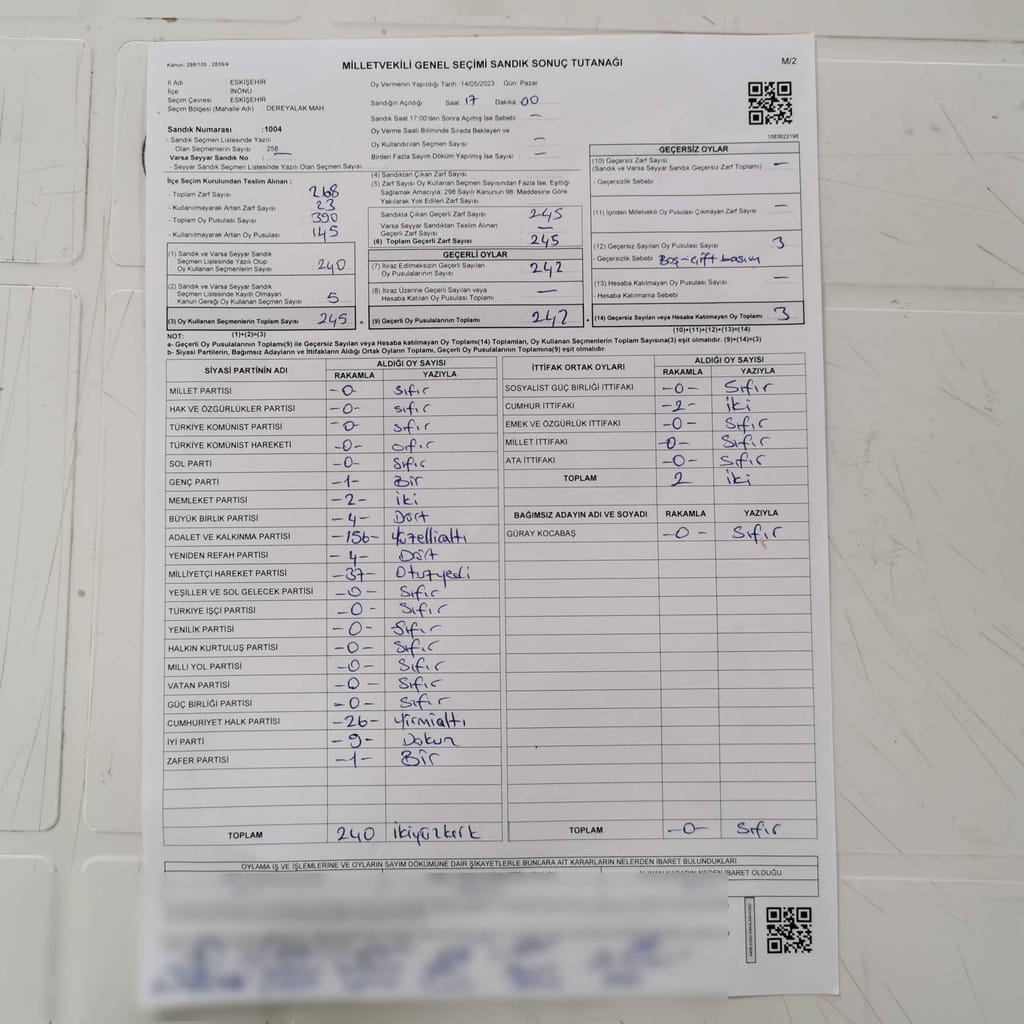 Kanun: 298/105 , 2839/4
MİLLETVEKİLİ GENEL SEÇİMİ SANDIK SONUÇ TUTANAĞI
M/2
İl Adı : ESKİŞEHİR
İlçe : İNÖNÜ
Seçim Çevresi : ESKİŞEHİR
Seçim Bölgesi (Mahalle Adı) : DEREYALAK MAH.
Sandık Numarası :1004
- Sandık Seçmen Listesinde Yazılı
Olan Seçmenlerin Sayısı : 258
Varsa Seyyar Sandık No : —
- Seyyar Sandık Seçmen Listesinde Yazılı Olan Seçmen Sayısı:
Oy Vermenin Yapıldığı Tarih :14/05/2023 Gün: Pazar
Sandığın Açıldığı Saat 17 Dakika 00
Sandık Saat 17:00'den Sonra Açımış İse Sebebi : —
Oy Verme Saati Bitiminde Sırada Bekleyen ve
Oy Kullandırılan Seçmen Sayısı : —
Birden Fazla Sayım Döküm Yapılmış İse Sayısı : —
1083822198
İlçe Seçim Kurulundan Teslim Alınan ;
- Toplam Zarf Sayısı : 268
- Kullanılmayarak Artan Zarf Sayısı : 23
- Toplam Oy Pusulası Sayısı : 390
- Kullanılmayarak Artan Oy Pusulası : 145
(1) Sandık ve Varsa Seyyar Sandık
Seçmen Listesinde Yazılı Olup
Oy Kullanan Seçmenlerin Sayısı : 240
(2) Sandık ve Varsa Seyyar Sandık
Seçmen Listesinde Kayıtlı Olmayan
Kanun Gereği Oy Kullanan Seçmen Sayısı : 5
(3) Oy Kullanan Seçmenlerin Toplam Sayısı : 245 =
(1)+(2)=(3)
(4) Sandıktan Çıkan Zarf Sayısı
(5) Zarf Sayısı Oy Kullanan Seçmen Sayısından Fazla İse, Eşitliği
Sağlamak Amacıyla, 298 Sayılı Kanunun 98. Maddesine Göre
Yakılarak Yok Edilen Zarf Sayısı
Sandıkta Çıkan Geçerli Zarf Sayısı : 245
Varsa Seyyar Sandıktan Teslim Alınan
Geçerli Zarf Sayısı : —
(6) Toplam Geçerli Zarf Sayısı : 245
GEÇERLİ OYLAR
(7) İtiraz Edilmeksizin Geçerli Sayılan
Oy Pusulalarının Sayısı : 242
(8) İtiraz Üzerine Geçerli Sayılan veya
Hesaba Katılan Oy Pusulası Toplamı : —
(9) Geçerli Oy Pusulalarının Toplamı : 242 +
GEÇERSİZ OYLAR
(10) Geçersiz Zarf Sayısı
(Sandık ve Varsa Seyyar Sandık Geçersiz Zarf Toplamı) : —
- Geçersizlik Sebebi :
(11) İçinden Milletvekili Oy Pusulası Çıkmayan Zarf Sayısı : —
(12) Geçersiz Sayılan Oy Pusulası Sayısı : 3
- Geçersizlik Sebebi : Boş-Çift basım
(13) Hesaba Katılmayan Oy Pusulası Sayısı : —
- Hesaba Katılmama Sebebi :
(14) Geçersiz Sayılan veya Hesaba Katılmayan Oy Toplamı : 3
(10)+(11)+(12)+(13)=(14)
NOT:
a- Geçerli Oy Pusulalarının Toplamı(9) ile Geçersiz Sayılan veya Hesaba Katılmayan Oy Toplamı(14) Toplamları, Oy Kullanan Seçmenlerin Toplam Sayısına(3) eşit olmalıdır. (9)+(14)=(3)
b- Siyasi Partilerin, Bağımsız Adayların ve İttifakların Aldığı Ortak Oyların Toplamı, Geçerli Oy Pusulalarının Toplamına(9) eşit olmalıdır.
SİYASİ PARTİNİN ADI ALDIĞI OY SAYISI
RAKAMLA YAZIYLA
MİLLET PARTİSİ -0- Sıfır
HAK VE ÖZGÜRLÜKLER PARTİSİ -0- sıfır
TÜRKİYE KOMÜNİST PARTİSİ -0- sıfır
TÜRKİYE KOMÜNİST HAREKETİ -0- sıfır
SOL PARTİ -0- Sıfır
GENÇ PARTİ -1- Bir
MEMLEKET PARTİSİ -2- İki
BÜYÜK BİRLİK PARTİSİ -4- Dört
ADALET VE KALKINMA PARTİSİ -156- Yüzellialtı
YENİDEN REFAH PARTİSİ -4- Dört
MİLLİYETÇİ HAREKET PARTİSİ -37- Otuzyedi
YEŞİLLER VE SOL GELECEK PARTİSİ -0- Sıfır
TÜRKİYE İŞÇİ PARTİSİ -0- Sıfır
YENİLİK PARTİSİ -0- Sıfır
HALKIN KURTULUŞ PARTİSİ -0- Sıfır
MİLLİ YOL PARTİSİ -0- Sıfır
VATAN PARTİSİ -0- Sıfır
GÜÇ BİRLİĞİ PARTİSİ -0- Sıfır
CUMHURİYET HALK PARTİSİ -26- Yirmialtı
İYİ PARTİ -9- Dokuz
ZAFER PARTİSİ -1- Bir
TOPLAM 240 ikiyüzkırk
İTTİFAK ORTAK OYLARI ALDIĞI OY SAYISI
RAKAMLA YAZIYLA
SOSYALİST GÜÇ BİRLİĞİ İTTİFAKI -0- Sıfır
CUMHUR İTTİFAKI -2- iki
EMEK VE ÖZGÜRLÜK İTTİFAKI -0- Sıfır
MİLLET İTTİFAKI -0- Sıfır
ATA İTTİFAKI -0- Sıfır
TOPLAM 2 iki
BAĞIMSIZ ADAYIN ADI VE SOYADI RAKAMLA YAZIYLA
GÜRAY KOCABAŞ -0- Sıfır
TOPLAM -0- Sıfır
OYLAMA İŞ VE İŞLEMLERİNE VE OYLARIN SAYIM DÖKÜMÜNE DAİR ŞİKAYETLERLE BUNLARA AİT KARARLARIN NELERDEN İBARET BULUNDUKLARI
ALINAN KARARIN NEDEN İBARET OLDUĞU